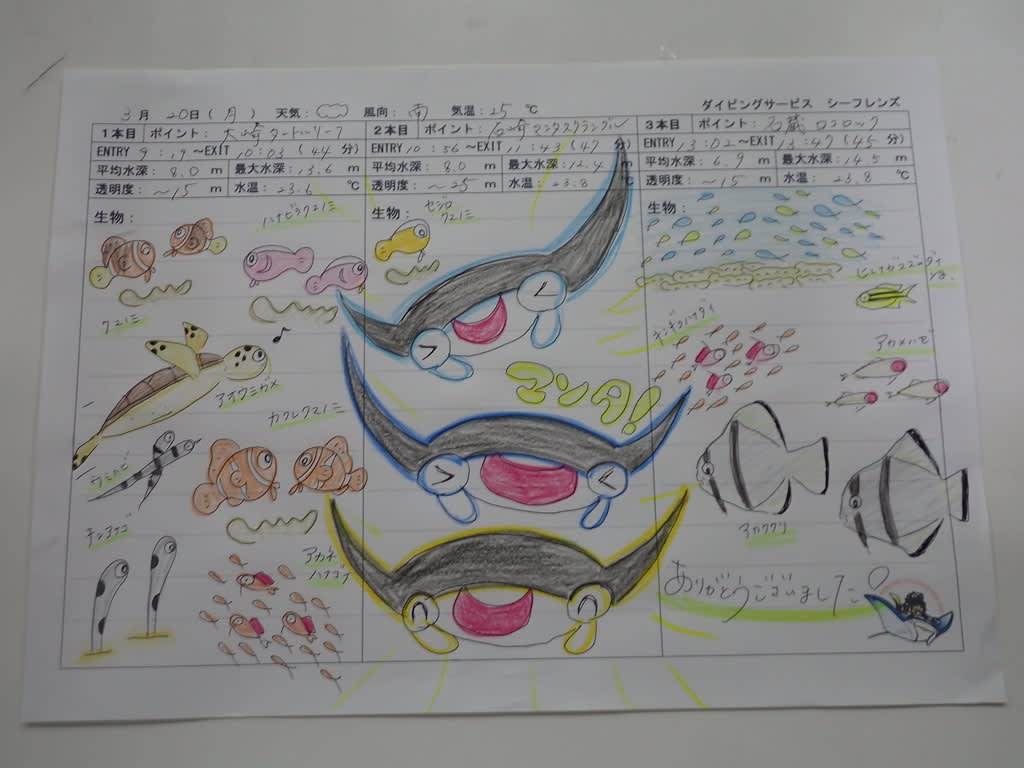 3月 20日(月) 天気: 風向: 南 気温: 25 ℃
ダイビングサービス シーフレンズ
1本目 ポイント: 大崎タートルリーフ
ENTRY 9:19 ～EXIT 10:03 (44 分)
平均水深: 8.0 m 最大水深: 13.6 m
透明度: ～15 m 水温: 23.6 ℃
生物:
ハナビラクマノミ
クマノミ
アオウミガメ
カクレクマノミ
ウミヘビ
チンアナゴ
アカネハナゴイ
2本目 ポイント: 石崎マンタスクランブル
ENTRY 10:56 ～EXIT 11:43 (47 分)
平均水深: 8.0 m 最大水深: 12.4 m
透明度: ～25 m 水温: 23.8 ℃
生物:
セジロ
クマノミ
マンタ!
3本目 ポイント: 石蔵ロンロック
ENTRY 13:02 ～EXIT 13:47 (45 分)
平均水深: 6.9 m 最大水深: 14.5 m
透明度: ～15 m 水温: 23.8 ℃
生物:
キンギョハナダイ
アカメハゼ
アカククリ
ありがとうございました